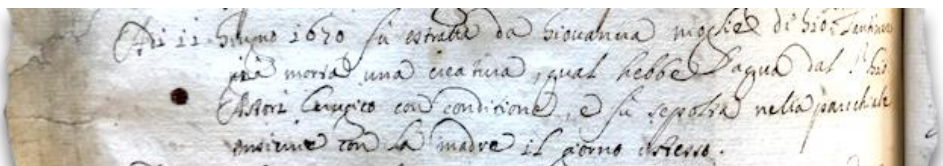 Adi 11 giugno 1670 fù estratta da Giovanna moglie di Gio:
già morta una creatura, qual hebbe l'aqua dal Sr. Gio
Astori Cerugico con conditione, e fù sepolta nella parochiale
insieme con la madre il giorno istesso.